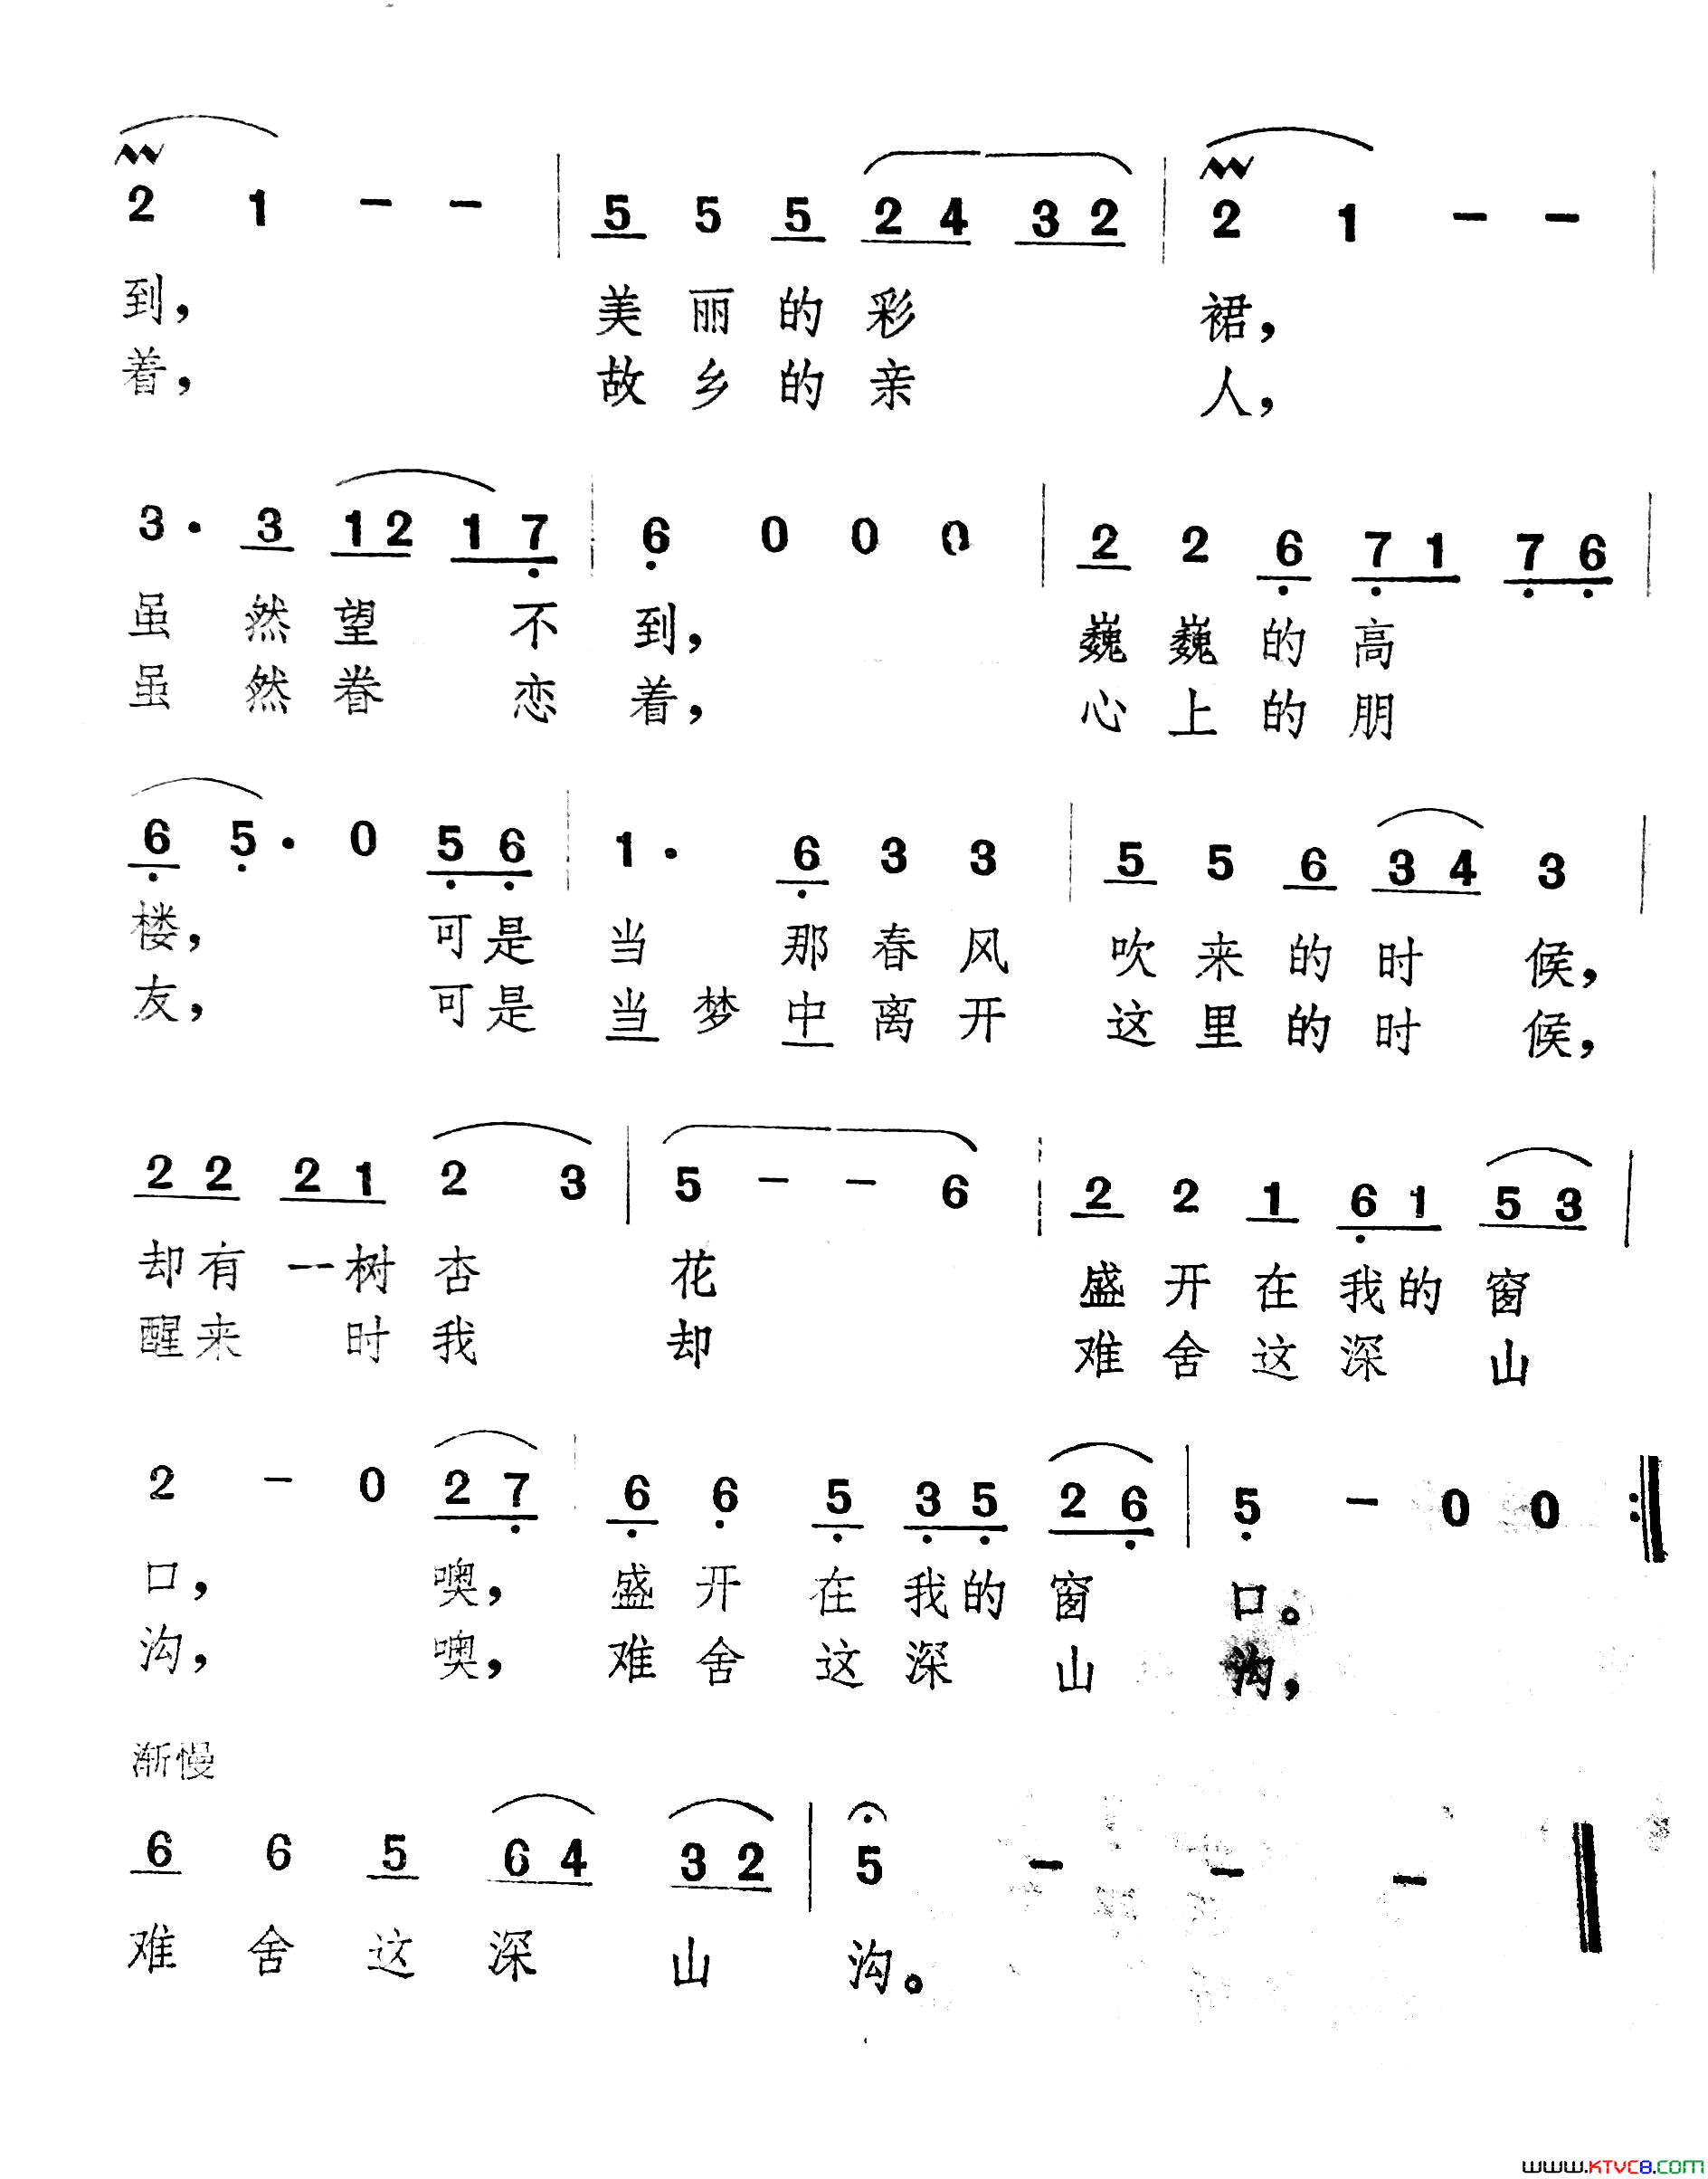 2 1 - - | 5 5 5 2 4 3 2 | 2 1 - - |
到， 美 丽 的 彩 裙，
着， 故 乡 的 亲 人，
3 · 3 1 2 1 7 | 6 0 0 0 | 2 2 6 7 1 7 6 |
虽 然 望 不 到， 巍 巍 的 高
虽 然 眷 恋 着， 心 上 的 朋
6 5 · 0 5 6 | 1 · 6 3 3 | 5 5 6 3 4 3 |
楼， 可 是 当 那 春 风 吹 来 的 时 候，
友， 可 是 当 梦 中 离 开 这 里 的 时 候，
2 2 2 1 2 3 | 5 - - 6 | 2 2 1 6 1 5 3 |
却 有 一 树 杏 花 盛 开 在 我 的 窗
醒 来 时 我 却 难 舍 这 深 山
2 - 0 2 7 | 6 6 5 3 5 2 6 | 5 - 0 0 :‖
口， 噢， 盛 开 在 我 的 窗 口。
沟， 噢， 难 舍 这 深 山 沟，
渐慢
6 6 5 6 4 3 2 | 5 - - - ‖
难 舍 这 深 山 沟。
www.KTVC8.COM